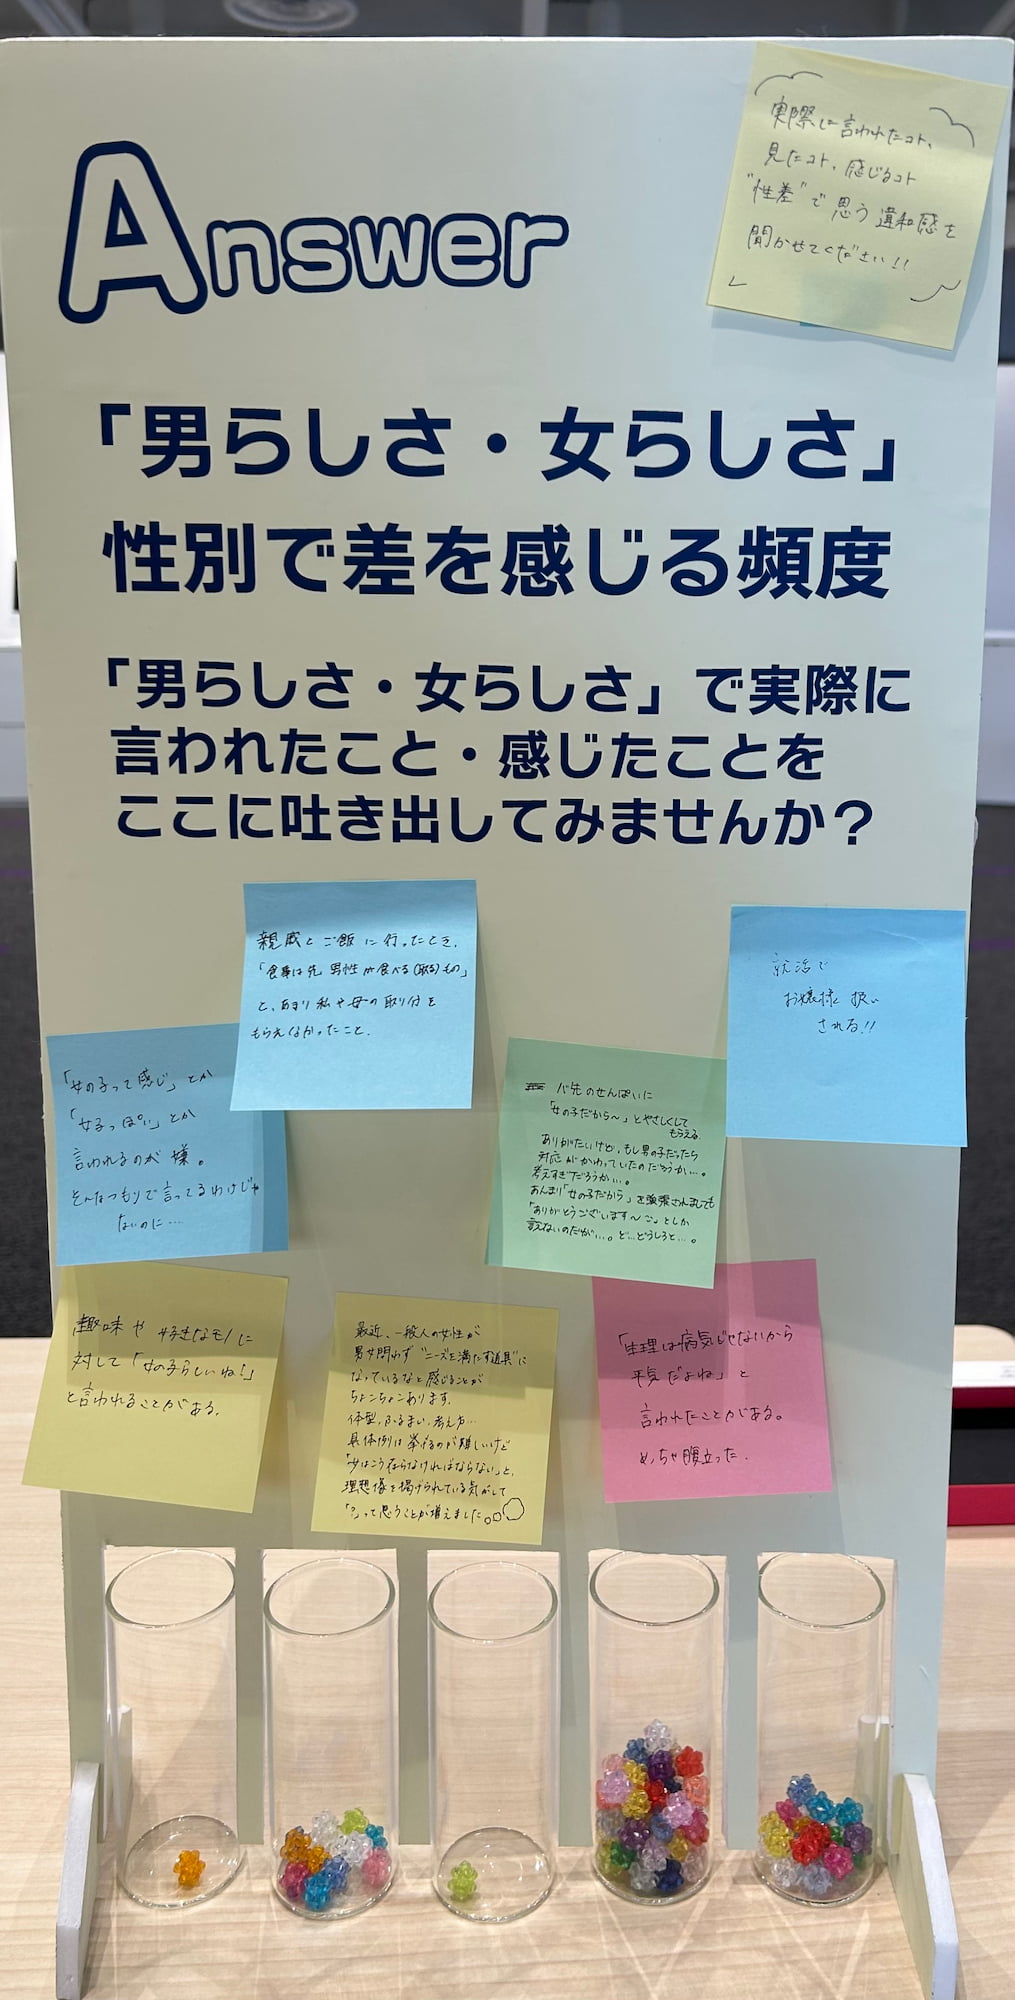 Answer
実際に言われたコト、
見たコト、感じるコト
"性差"で思う違和感を
聞かせてください!!
「男らしさ・女らしさ」
性別で差を感じる頻度
「男らしさ・女らしさ」で実際に
言われたこと・感じたことを
ここに吐き出してみませんか？
親戚とご飯に行ったとき、
「食事は先 男性が食べる(取る)もの」
と、あまり私や母の取り分を
もらえなかったこと.
就活で
お嬢様扱い
される!!
「女の子って感じ」とか
「女子っぽい」とか
言われるのが嫌。
そんなつもりで言ってるわけじゃ
ないのに…
バ先のせんぱいに
「女の子だから〜」とやさしくして
もらえる.
ありがたいけど、もし男の子だったら
対応がかわっていたのだろうか…。
考えすぎだろうか…。
あんまり「女の子だから」を強張されましても
「ありがとうございます〜」としか
言えないのだが…。ど…どうしろと…。
趣味や好きなモノに
対して「女の子らしいね!」
と言われることがある.
最近、一般人の女性が
男女問わず"ニーズを満たす道具"に
なっているなと感じることが
ちょこちょこあります.
体型、ふるまい、考え方…
具体例は挙げるのが難しいけど
「女はこう在らなければならない」と、
理想像を掲げられている気がして
「?」って思うことが増えました。
「生理は病気じゃないから
平気だよね」と
言われたことがある。
めっちゃ腹立った.